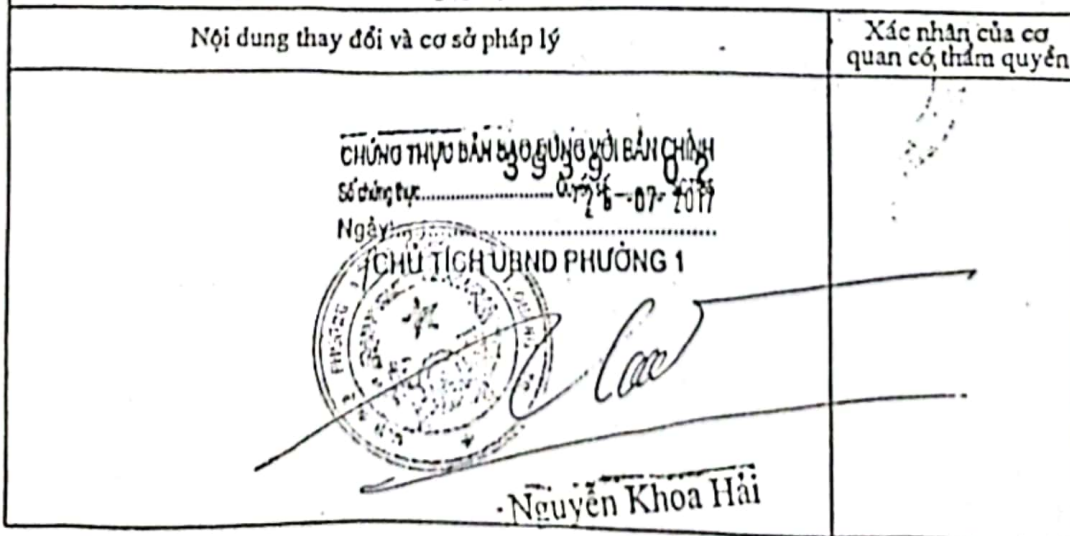 Nội dung thay đổi và cơ sở pháp lý
Xác nhận của cơ
quan có thẩm quyền
CHỨNG THỰC BẢN SAO ĐÚNG VỚI BẢN CHÍNH
3939 02
Số chứng thực
26-07-2017
Ngày
CHỦ TỊCH UBND PHƯỜNG 1
Nguyễn Khoa Hải